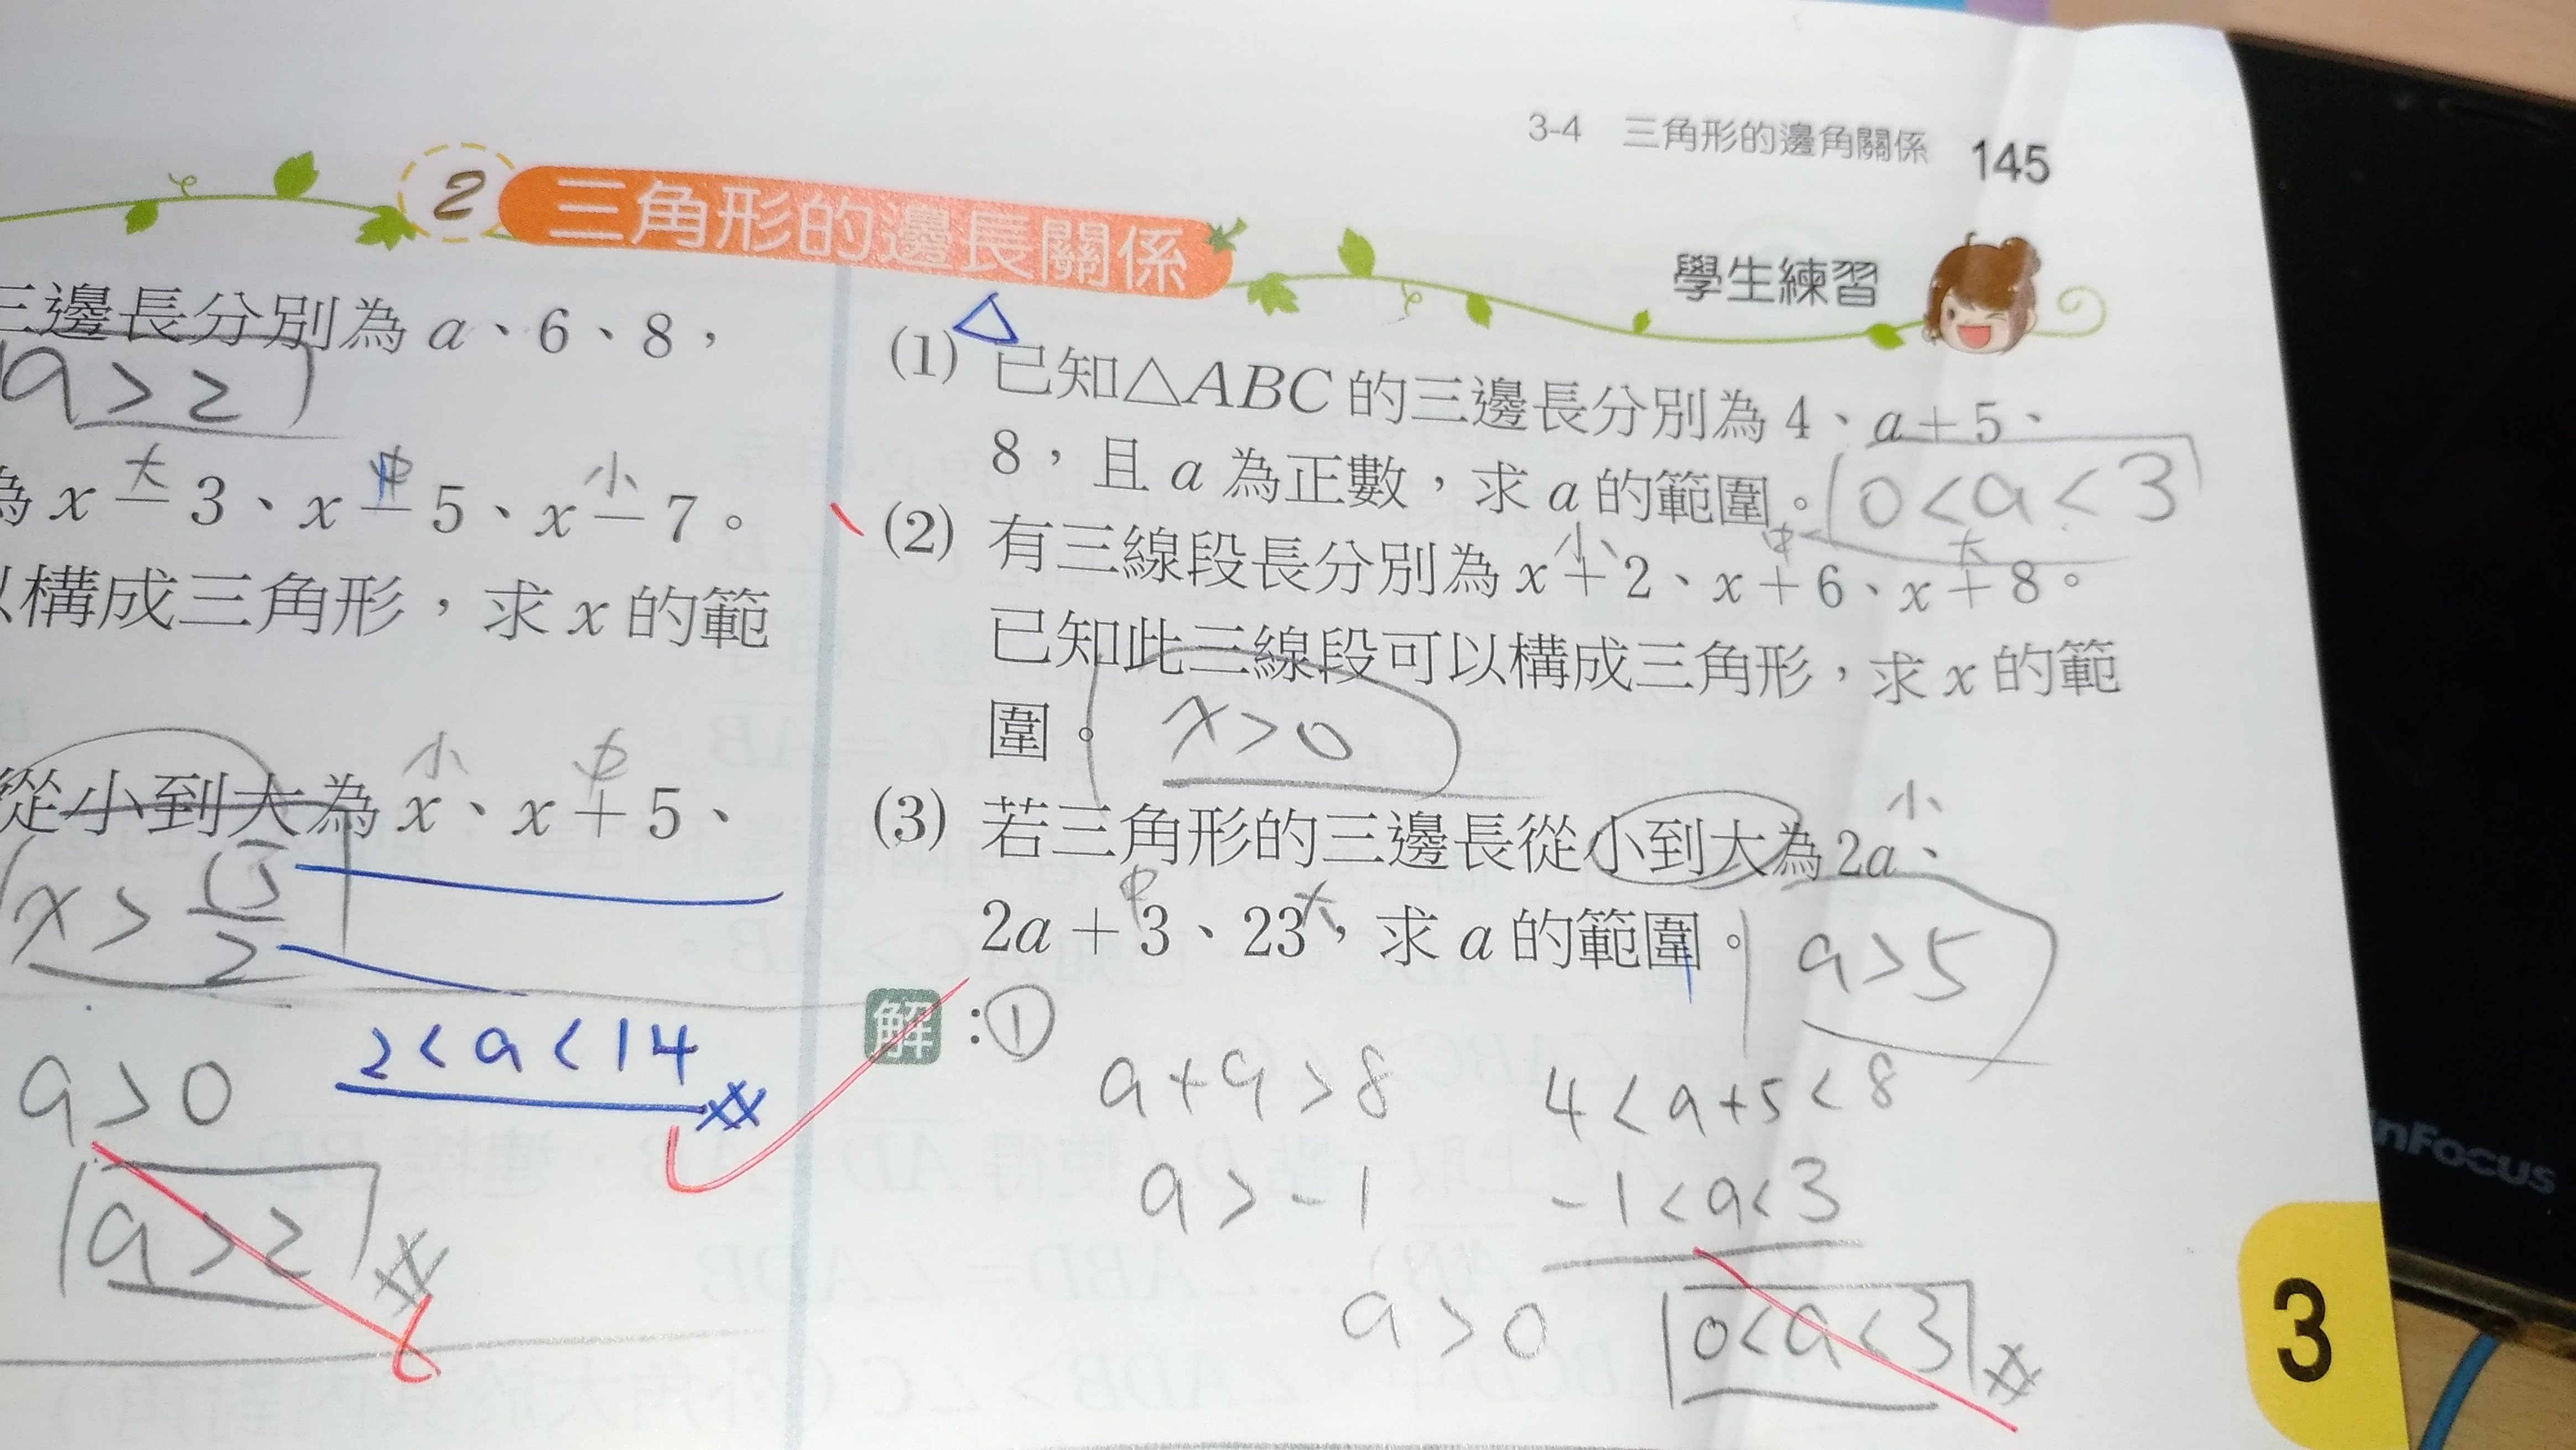 3-4 三角形的邊角關係 145
2 三角形的邊長關係
學生練習
三邊長分別為 a、6、8,
a > 2
大 中 小
為 x − 3、x − 5、x − 7。
以構成三角形,求 x 的範
小 中
從小到大為 x、x + 5、
x > 13/2
2 < a < 14
a > 0
a > 2
(1) 已知△ABC 的三邊長分別為 4、a + 5、
8,且 a 為正數,求 a 的範圍。 0 < a < 3
小 中 大
(2) 有三線段長分別為 x + 2、x + 6、x + 8。
已知此三線段可以構成三角形,求 x 的範
圍。 x > 0
小
(3) 若三角形的三邊長從小到大為 2a、
中 大
2a + 3、23,求 a 的範圍。 a > 5
解:①
a + 9 > 8 4 < a + 5 < 8
a > -1 -1 < a < 3
a > 0 0 < a < 3
3
InFocus